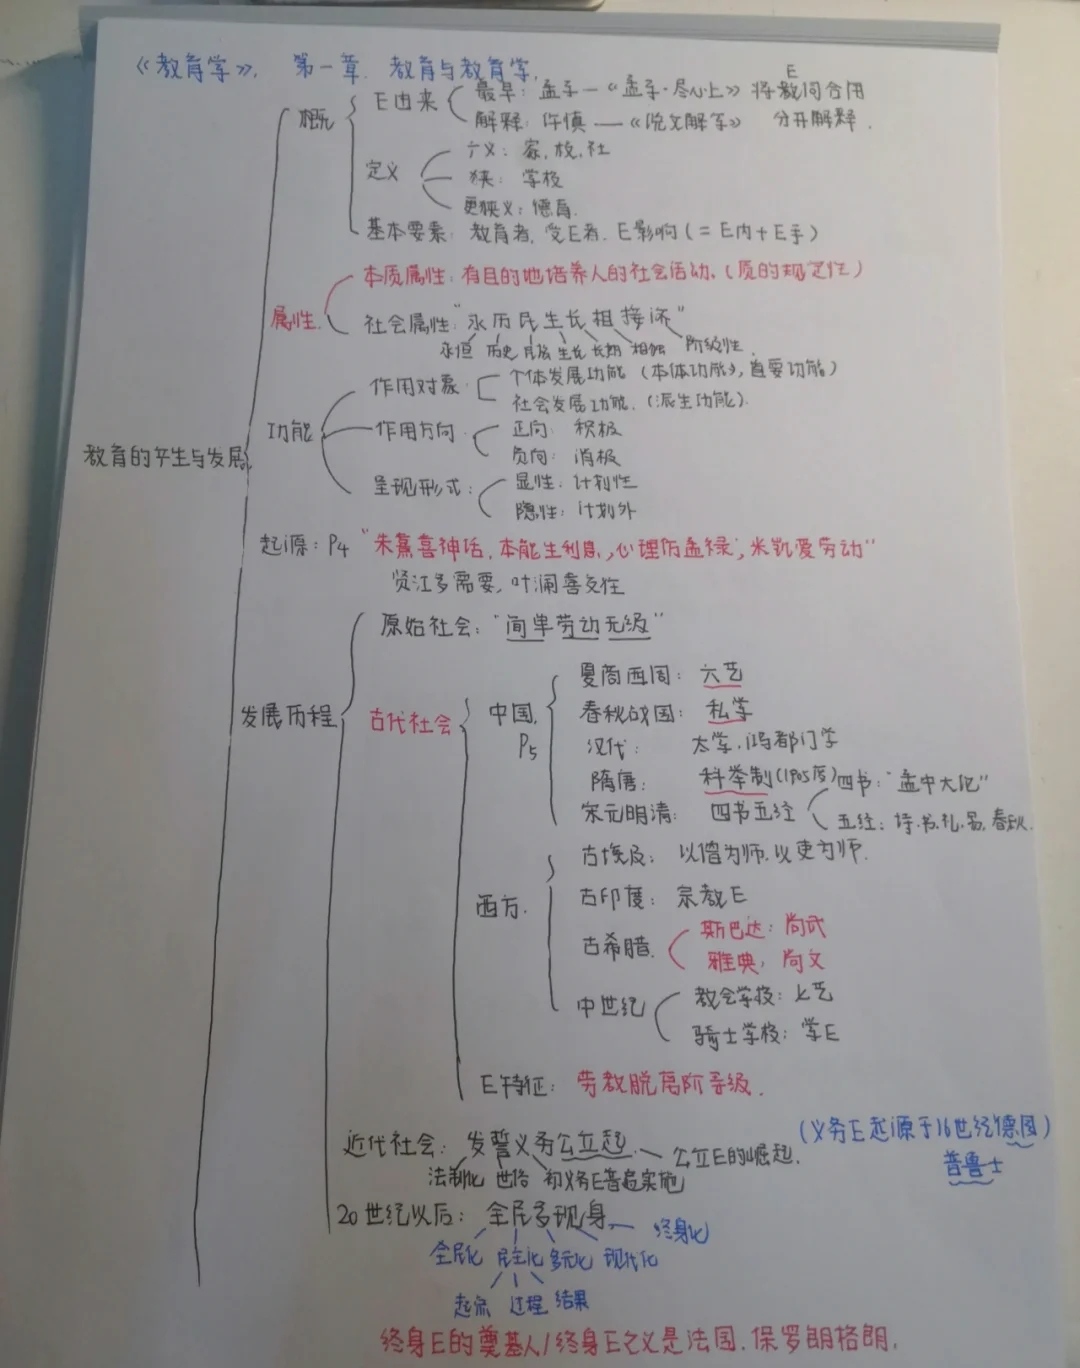 《教育学》. 第一章. 教育与教育学.
概况
E由来
最早: 孟子—《孟子·尽心上》 将教同合用
E
解释: 许慎 —《说文解字》 分开解释.
定义
广义: 家, 校, 社
狭: 学校
更狭义: 德育.
基本要素: 教育者, 受E者, E影响 (= E内 + E手)
属性.
本质属性: 有目的地培养人的社会活动. (质的规定性)
社会属性: "永历民生长相接济"
永恒 历史 民族 生长 长期 相独 阶级性
功能
作用对象.
个体发展功能 (本体功能), 首要功能)
社会发展功能. (派生功能).
作用方向.
正向: 积极
负向: 消极
呈现形式:
显性: 计划性
隐性: 计划外
教育的产生与发展.
起源: P4 "朱熹喜神话, 本能生利息, 心理仿孟禄, 米凯爱劳动"
贤江多需要, 叶澜喜交往
发展历程
原始社会: "简单劳动无级"
古代社会
中国. P5
夏商西周: 六艺
春秋战国: 私学
汉代: 太学, 鸿都门学
隋唐: 科举制 (1905废)
宋元明清: 四书五经
四书: "孟中大论"
五经: 诗.书.礼.易.春秋.
西方.
古埃及: 以僧为师, 以吏为师.
古印度: 宗教E
古希腊.
斯巴达: 尚武
雅典: 尚文
中世纪
教会学校: 七艺
骑士学校: 学E
E特征: 劳教脱离阶等级.
近代社会: 发誓义务公立起. — 公立E的崛起.
(义务E起源于16世纪德国)
普鲁士
法制化 世俗 初义务E普遍实施
20世纪以后: 全民多现身 — 终身化
全民化 民主化 多元化 现代化
起点 过程 结果
终身E的奠基人/终身E之父是法国. 保罗朗格朗.